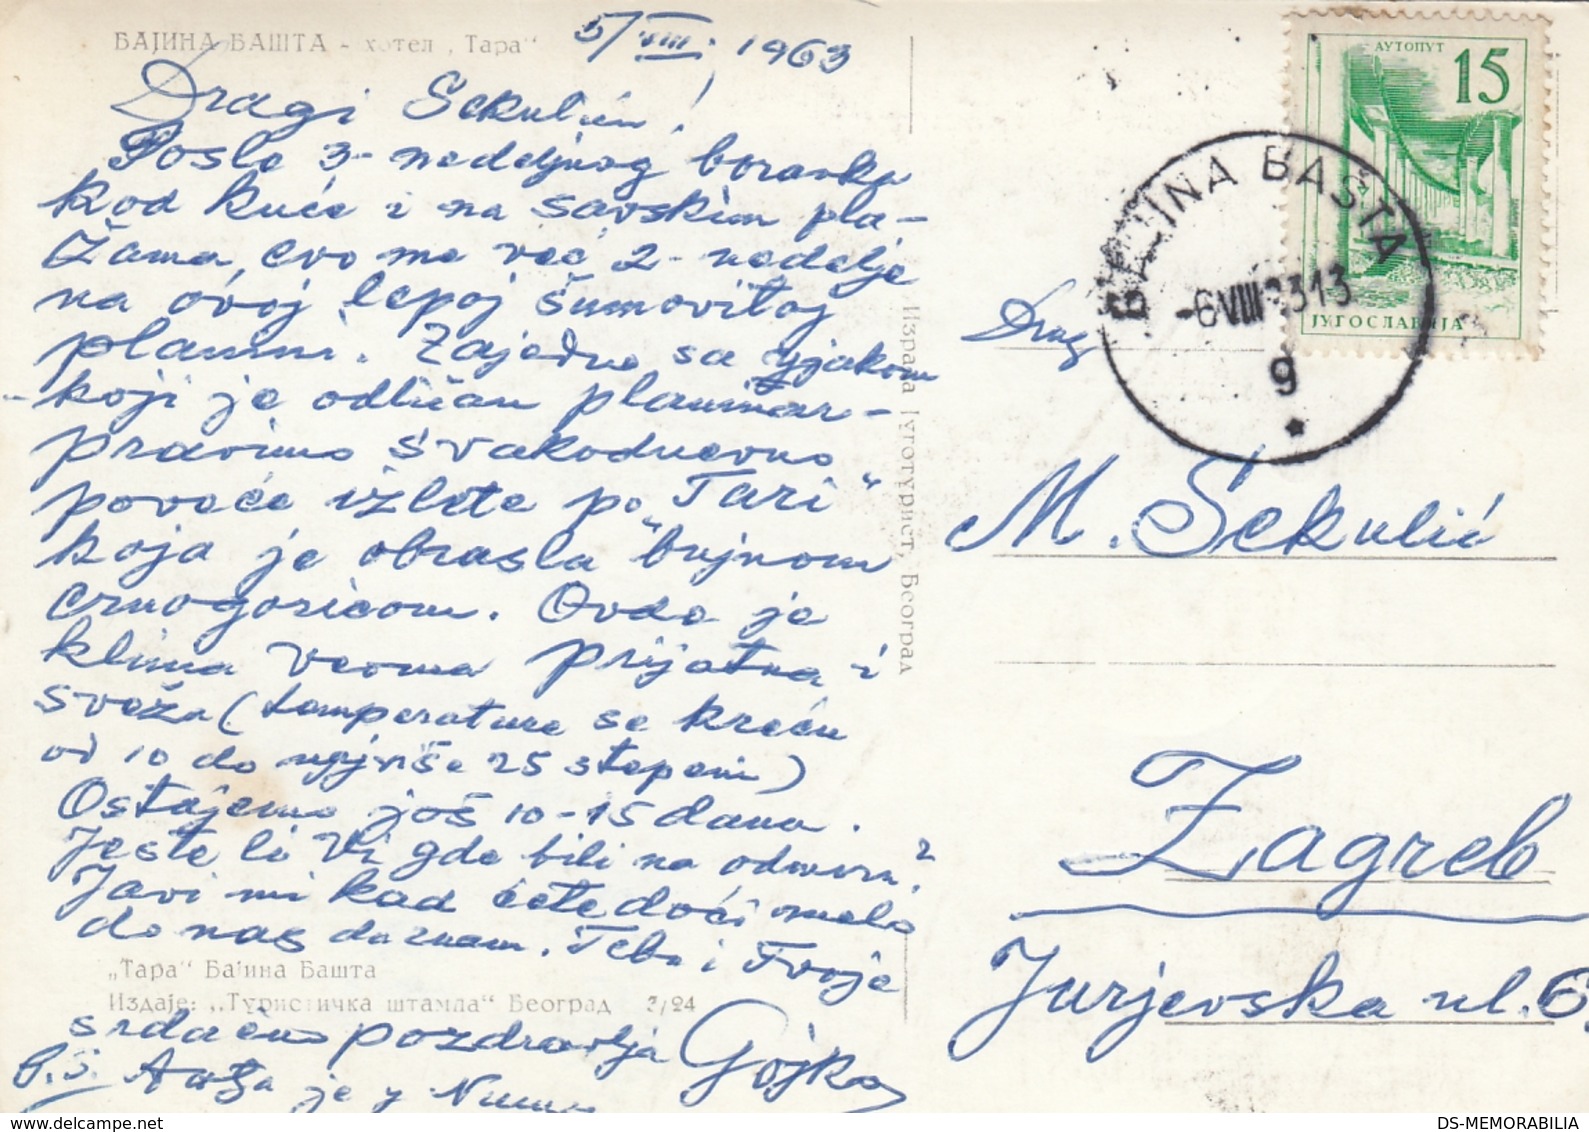 БАЈИНА БАШТА - хотел „Тара“
5/VIII. 1963
Dragi Sekuliću!
Posle 3-nedeljnog boravka
kod kuće i na savskim pla-
žama, evo me već 2-nedelje
na ovoj lepoj šumovitoj
planini. Zajedno sa ujakom
koji je odličan planinar-
pravimo svakodnevno
poveće izlete po „Tari“
koja je obrasla bujnom
crnogoricom. Ovde je
klima veoma prijatna i
sveža (temperature se kreću
od 10 do najviše 25 stepeni)
Ostajemo još 10-15 dana.
Jeste li Vi gde bili na odmoru?
Javi mi kad ćete doći malo
do nas da znam. Tebe i Tvoje
„Тара“ Бајина Башта
Издаје: „Туристичка штампа“ Београд 3/24
srdačno pozdravlja Gojko
P.S. je u
Израда Југотурист, Београд
АУТОПУТ
15
ЈУГОСЛАВИЈА
BAJINA BAŠTA
-6VIII 63 13
9
Drug
M. Sekulić
Zagreb
Jurjevska ul. 6
DS-MEMORABILIA